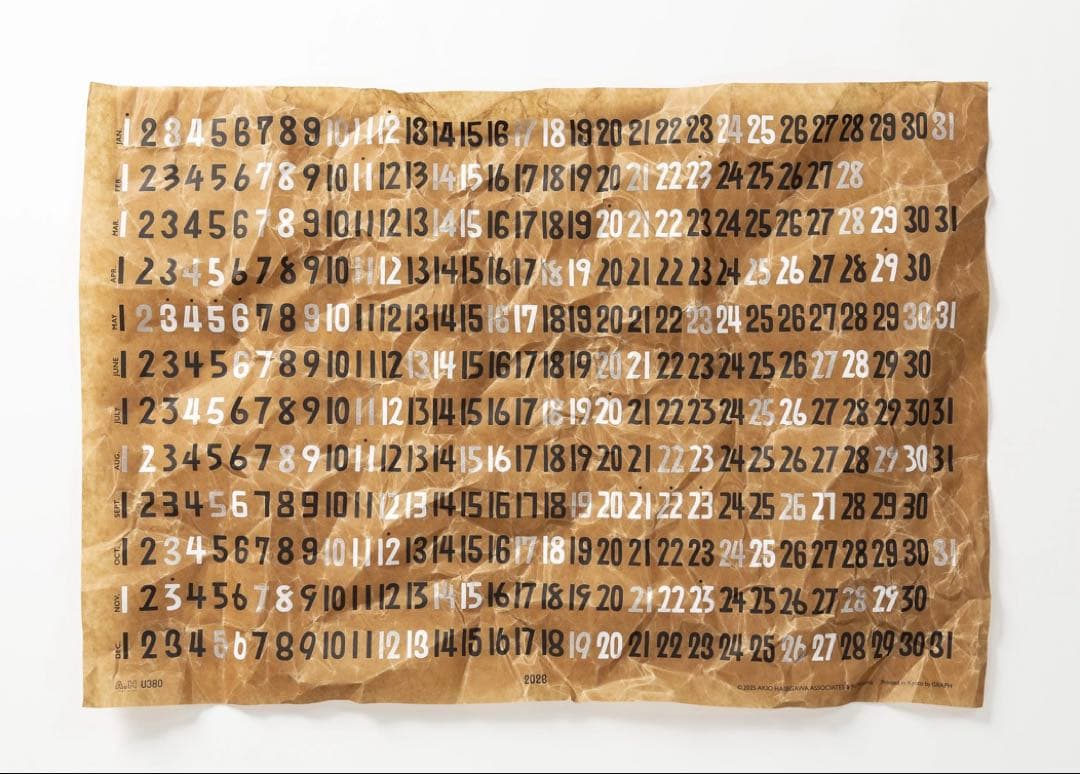 JAN. 1 2 3 4 5 6 7 8 9 10 11 12 13 14 15 16 17 18 19 20 21 22 23 24 25 26 27 28 29 30 31
FEB. 1 2 3 4 5 6 7 8 9 10 11 12 13 14 15 16 17 18 19 20 21 22 23 24 25 26 27 28
MAR. 1 2 3 4 5 6 7 8 9 10 11 12 13 14 15 16 17 18 19 20 21 22 23 24 25 26 27 28 29 30 31
APR. 1 2 3 4 5 6 7 8 9 10 11 12 13 14 15 16 17 18 19 20 21 22 23 24 25 26 27 28 29 30
MAY 1 2 3 4 5 6 7 8 9 10 11 12 13 14 15 16 17 18 19 20 21 22 23 24 25 26 27 28 29 30 31
JUNE 1 2 3 4 5 6 7 8 9 10 11 12 13 14 15 16 17 18 19 20 21 22 23 24 25 26 27 28 29 30
JULY 1 2 3 4 5 6 7 8 9 10 11 12 13 14 15 16 17 18 19 20 21 22 23 24 25 26 27 28 29 30 31
AUG. 1 2 3 4 5 6 7 8 9 10 11 12 13 14 15 16 17 18 19 20 21 22 23 24 25 26 27 28 29 30 31
SEPT. 1 2 3 4 5 6 7 8 9 10 11 12 13 14 15 16 17 18 19 20 21 22 23 24 25 26 27 28 29 30
OCT. 1 2 3 4 5 6 7 8 9 10 11 12 13 14 15 16 17 18 19 20 21 22 23 24 25 26 27 28 29 30 31
NOV. 1 2 3 4 5 6 7 8 9 10 11 12 13 14 15 16 17 18 19 20 21 22 23 24 25 26 27 28 29 30
DEC. 1 2 3 4 5 6 7 8 9 10 11 12 13 14 15 16 17 18 19 20 21 22 23 24 25 26 27 28 29 30 31
A.H U380 2026 ©2025 AKIO HASEGAWA ASSOCIATES Printed in Kyoto by GRAPH